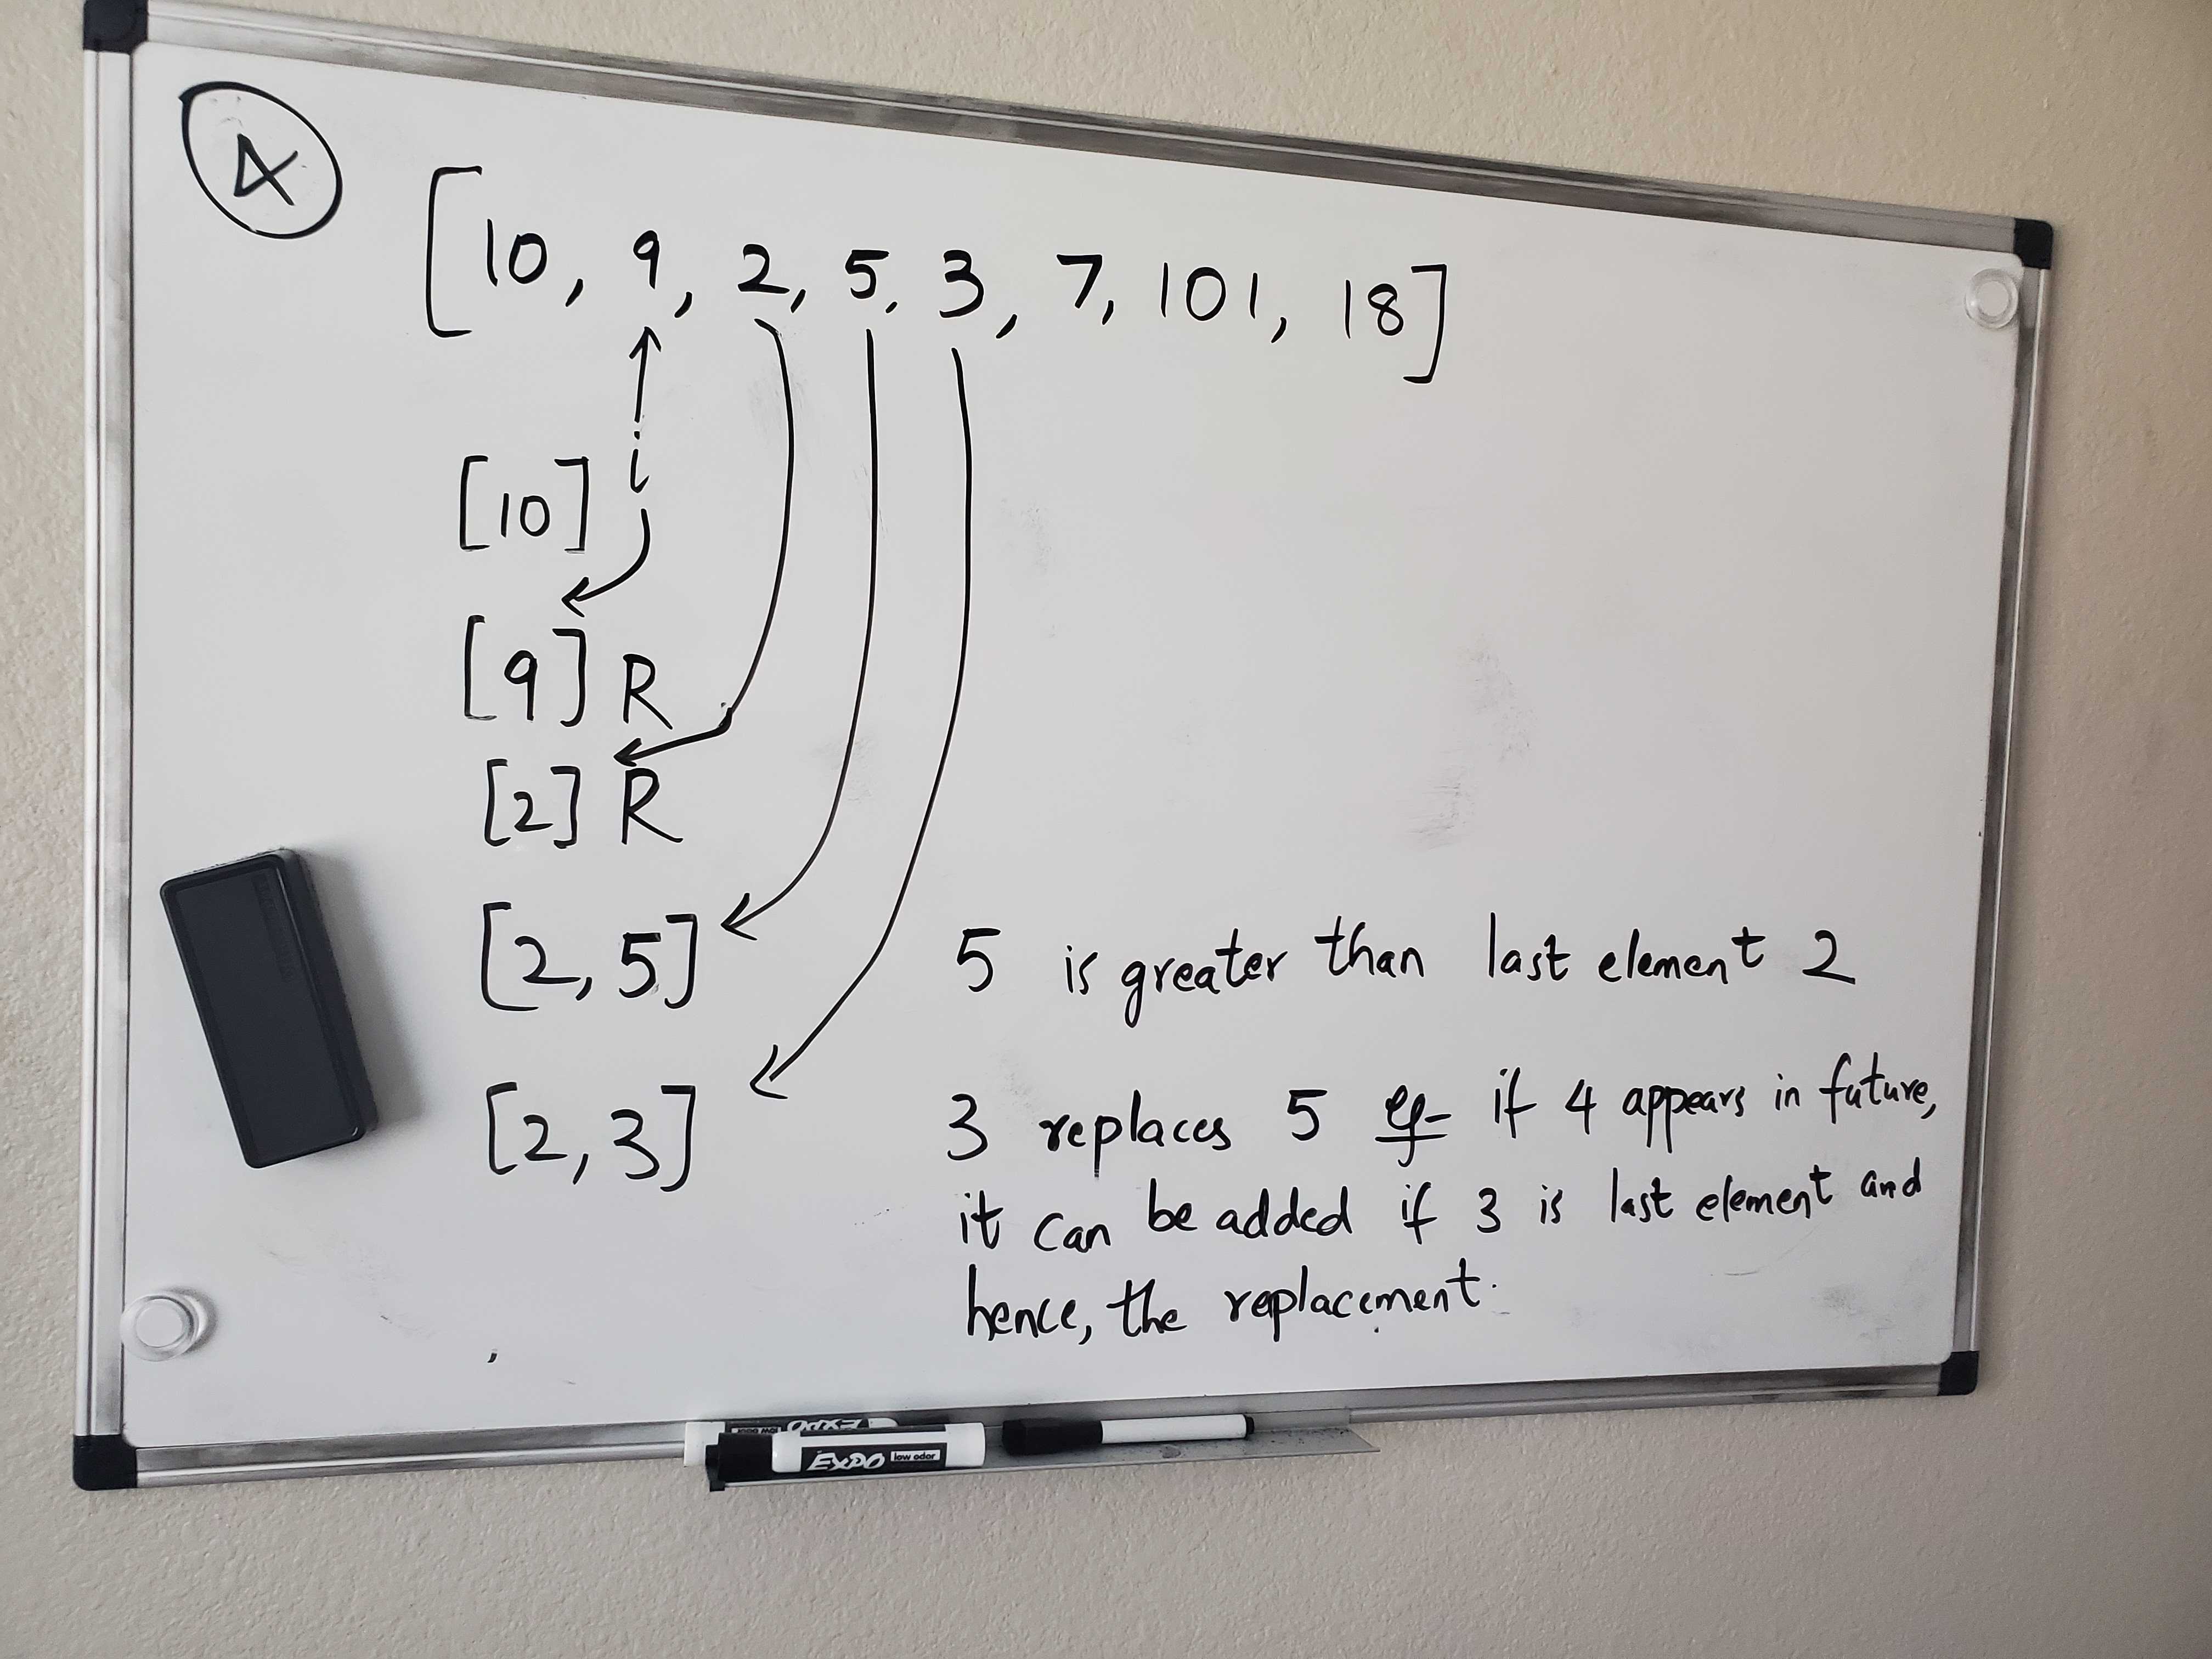 4
[10, 9, 2, 5, 3, 7, 101, 18]
i
[10]
[9] R
[2] R
[2, 5] 5 is greater than last element 2
[2, 3] 3 replaces 5 eg- if 4 appears in future,
it can be added if 3 is last element and
hence, the replacement.
EXPO
low odor
EXPO low odor